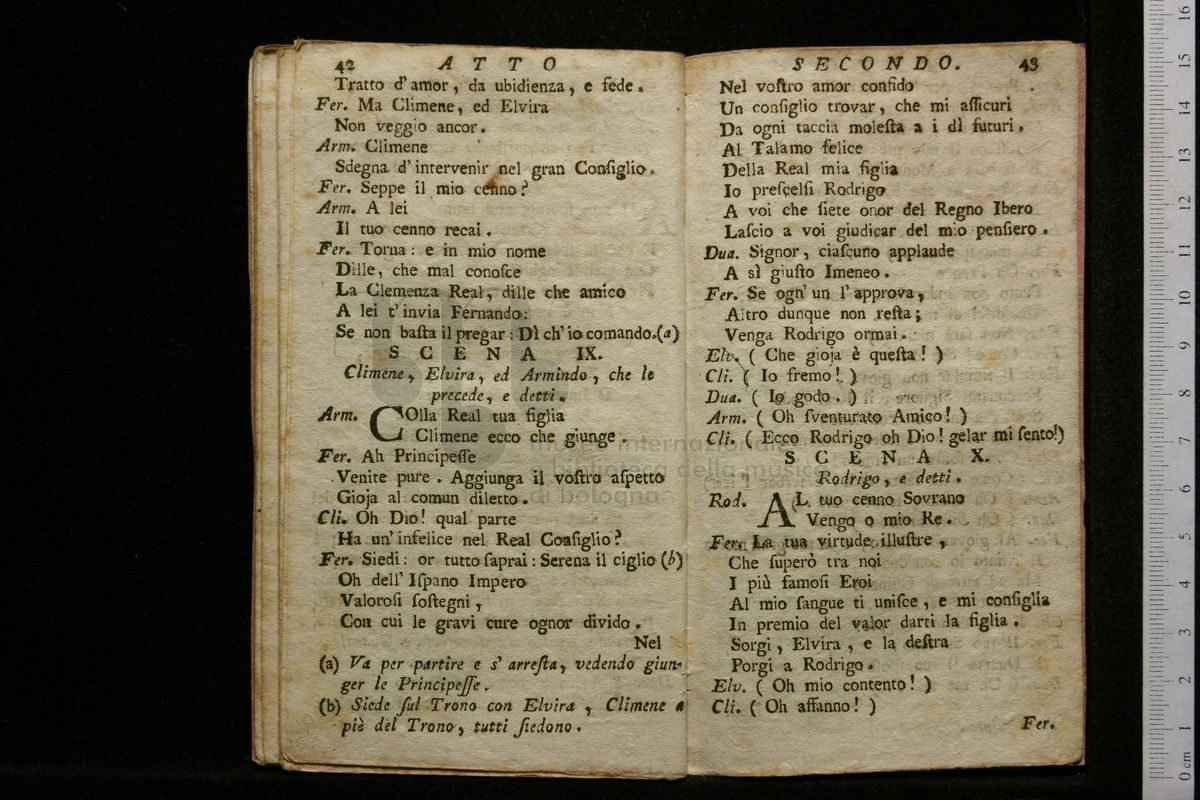 42 ATTO
Tratto d'amor, da ubidienza, e fede.
Fer. Ma Climene, ed Elvira
Non veggio ancor.
Arm. Climene
Sdegna d'intervenir nel gran Conſiglio.
Fer. Seppe il mio cenno?
Arm. A lei
Il tuo cenno recai.
Fer. Torna: e in mio nome
Dille, che mal conoſce
La Clemenza Real, dille che amico
A lei t'invia Fernando:
Se non baſta il pregar: Dì ch'io comando.(a)
SCENA IX.
Climene, Elvira, ed Armindo, che le
precede, e detti.
Arm. COlla Real tua figlia
Climene ecco che giunge.
Fer. Ah Principeſſe
Venite pure. Aggiunga il voſtro aſpetto
Gioja al comun diletto.
Cli. Oh Dio! qual parte
Ha un'infelice nel Real Conſiglio?
Fer. Siedi: or tutto ſaprai: Serena il ciglio (b)
Oh dell'Iſpano Impero
Valoroſi ſoſtegni,
Con cui le gravi cure ognor divido.
Nel
(a) Va per partire e s'arreſta, vedendo giun-
ger le Principeſſe.
(b) Siede ſul Trono con Elvira, Climene a
piè del Trono, tutti ſiedono.
SECONDO. 43
Nel voſtro amor confido
Un conſiglio trovar, che mi aſſicuri
Da ogni taccia moleſta a i dì futuri.
Al Talamo felice
Della Real mia figlia
Io preſcelſi Rodrigo
A voi che ſiete onor del Regno Ibero
Laſcio a voi giudicar del mio penſiero.
Dua. Signor, ciaſcuno applaude
A sì giuſto Imeneo.
Fer. Se ogn'un l'approva,
Altro dunque non reſta;
Venga Rodrigo ormai.
Elv. ( Che gioja è queſta! )
Cli. ( Io fremo! )
Dua. ( Io godo. )
Arm. ( Oh ſventurato Amico! )
Cli. ( Ecco Rodrigo oh Dio! gelar mi ſento!)
SCENA X.
Rodrigo, e detti.
Rod. AL tuo cenno Sovrano
Vengo o mio Re.
Fer. La tua virtude illuſtre,
Che ſuperò tra noi
I più famoſi Eroi
Al mio ſangue ti uniſce, e mi conſiglia
In premio del valor darti la figlia.
Sorgi, Elvira, e la deſtra
Porgi a Rodrigo.
Elv. ( Oh mio contento! )
Cli. ( Oh affanno! )
Fer.
museo internazionale
e biblioteca della musica
di bologna
0 cm 1 2 3 4 5 6 7 8 9 10 11 12 13 14 15 16